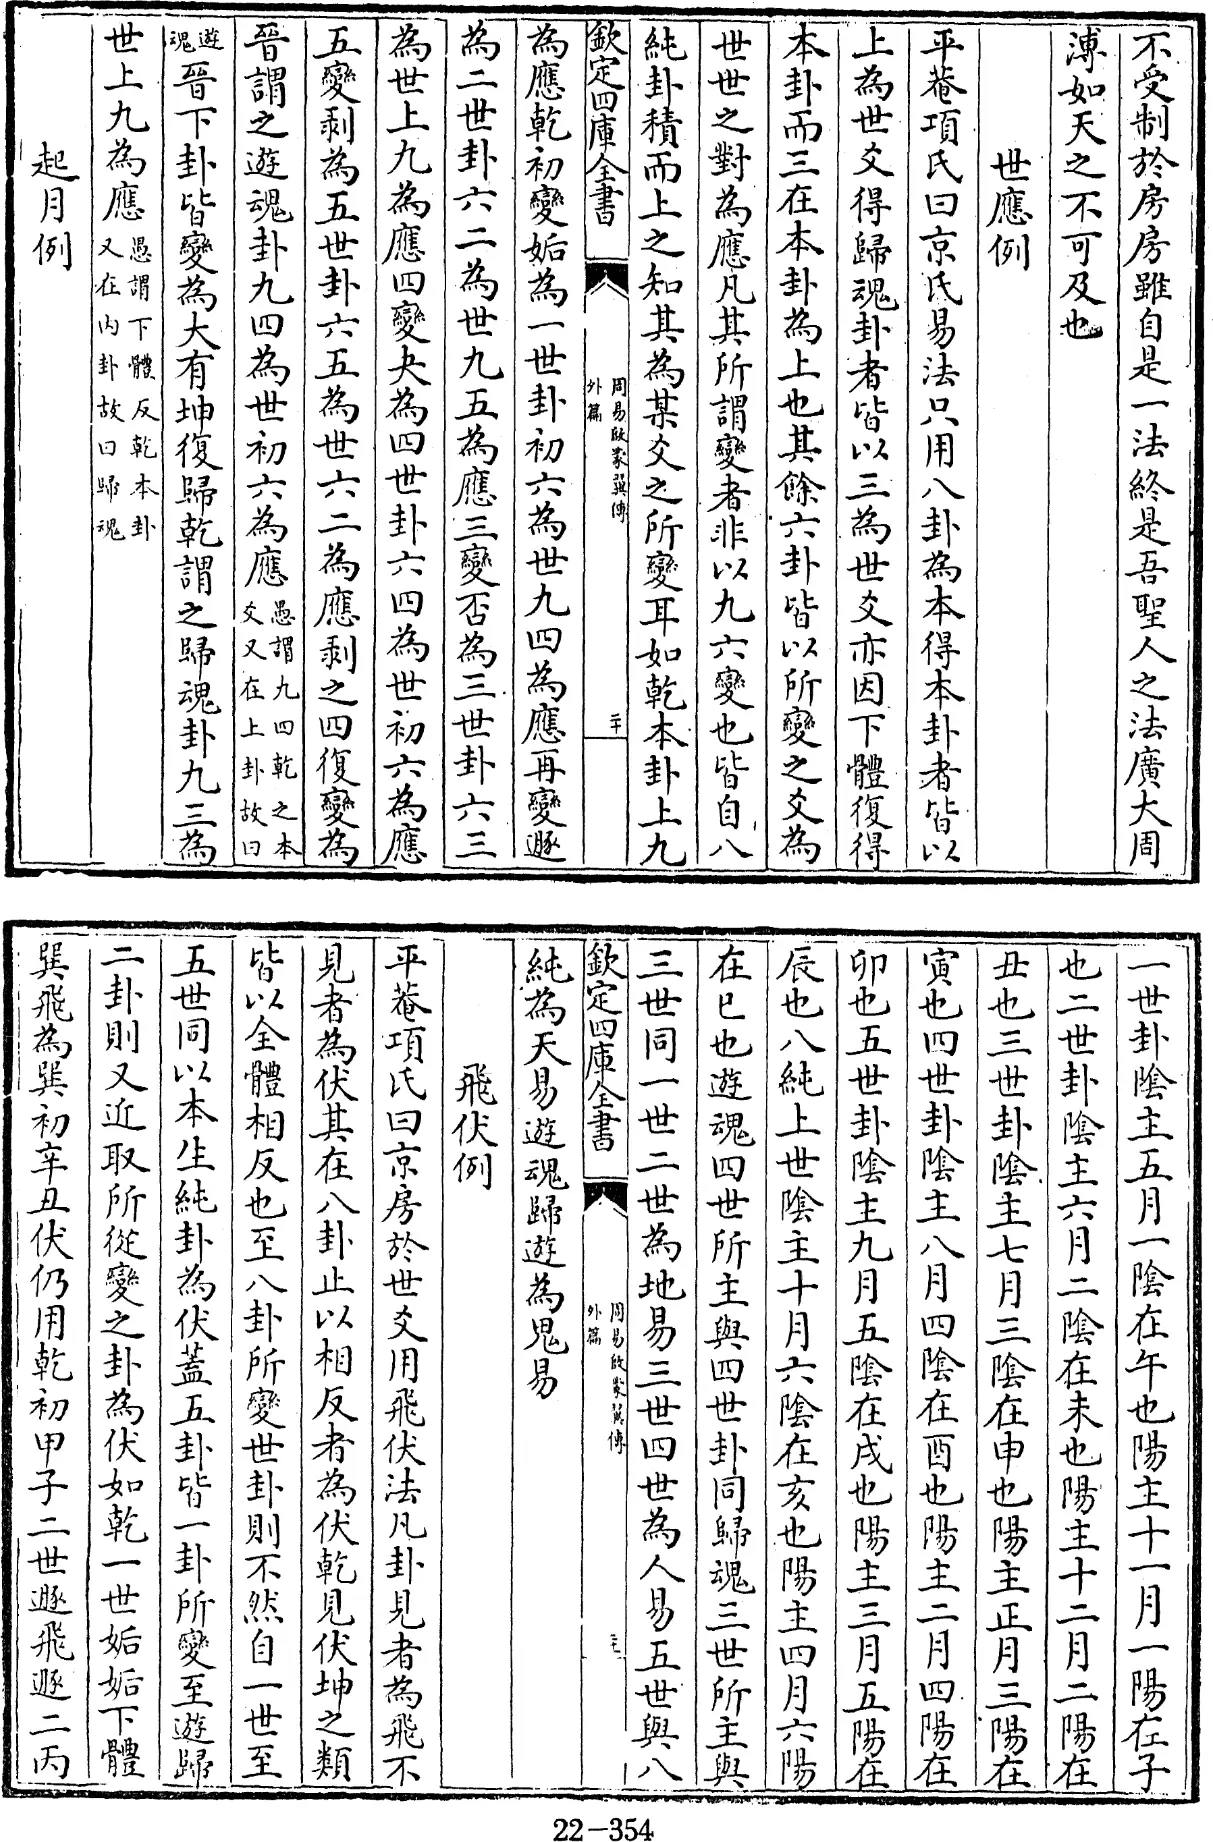 不受制於房房雖自是一法終是吾聖人之法廣大周
溥如天之不可及也
世應例
平菴項氏曰京氏易法只用八卦為本得本卦者皆以
上為世爻得歸魂卦者皆以三為世爻亦因下體復得
本卦而三在本卦為上也其餘六卦皆以所變之爻為
世世之對為應凡其所謂變者非以九六變也皆自八
純卦積而上之知其為某爻之所變耳如乾本卦上九
欽定四庫全書
周易啟蒙翼傳
外篇
二十
為應乾初變姤為一世卦初六為世九四為應再變遯
為二世卦六二為世九五為應三變否為三世卦六三
為世上九為應四變夬為四世卦六四為世初六為應
五變剥為五世卦六五為世六二為應剥之四復變為
晉謂之遊魂卦九四為世初六為應愚謂九四乾之本
爻又在上卦故曰
遊
魂晉下卦皆變為大有坤復歸乾謂之歸魂卦九三為
世上九為應愚謂下體反乾本卦
又在内卦故曰歸魂
起月例
一世卦陰主五月一陰在午也陽主十一月一陽在子
也二世卦陰主六月二陰在未也陽主十二月二陽在
丑也三世卦陰主七月三陰在申也陽主正月三陽在
寅也四世卦陰主八月四陰在酉也陽主二月四陽在
卯也五世卦陰主九月五陰在戌也陽主三月五陽在
辰也八純上世陰主十月六陰在亥也陽主四月六陽
在巳也遊魂四世所主與四世卦同歸魂三世所主與
三世同一世二世為地易三世四世為人易五世與八
欽定四庫全書
周易啟蒙翼傳
外篇
純為天易遊魂歸遊為鬼易
飛伏例
平菴項氏曰京房於世爻用飛伏法凡卦見者為飛不
見者為伏其在八卦止以相反者為伏乾見伏坤之類
皆以全體相反也至八卦所變世卦則不然自一世至
五世同以本生純卦為伏蓋五卦皆一卦所變至遊歸
二卦則又近取所從變之卦為伏如乾一世姤姤下體
巽飛為巽初辛丑伏仍用乾初甲子二世遯飛遯二丙
22-354